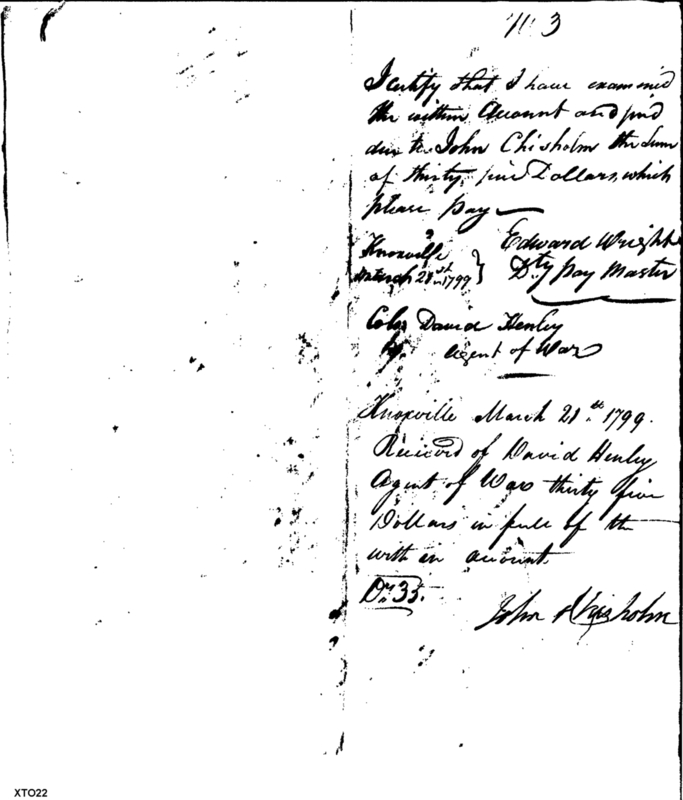 No 3
I certify that I have examined
the within Account and find
due to John Chisholm the Sum
of thirty five Dollars, which
please pay
Knoxville
March 21st 1799
Edward Wright
Dty Pay Master
Colo David Henley
Agent of War
Knoxville March 21st 1799.
Received of David Henley
Agent of War thirty five
Dollars in full of the
with in account
Drs 35.
John Chisholm
XTO22